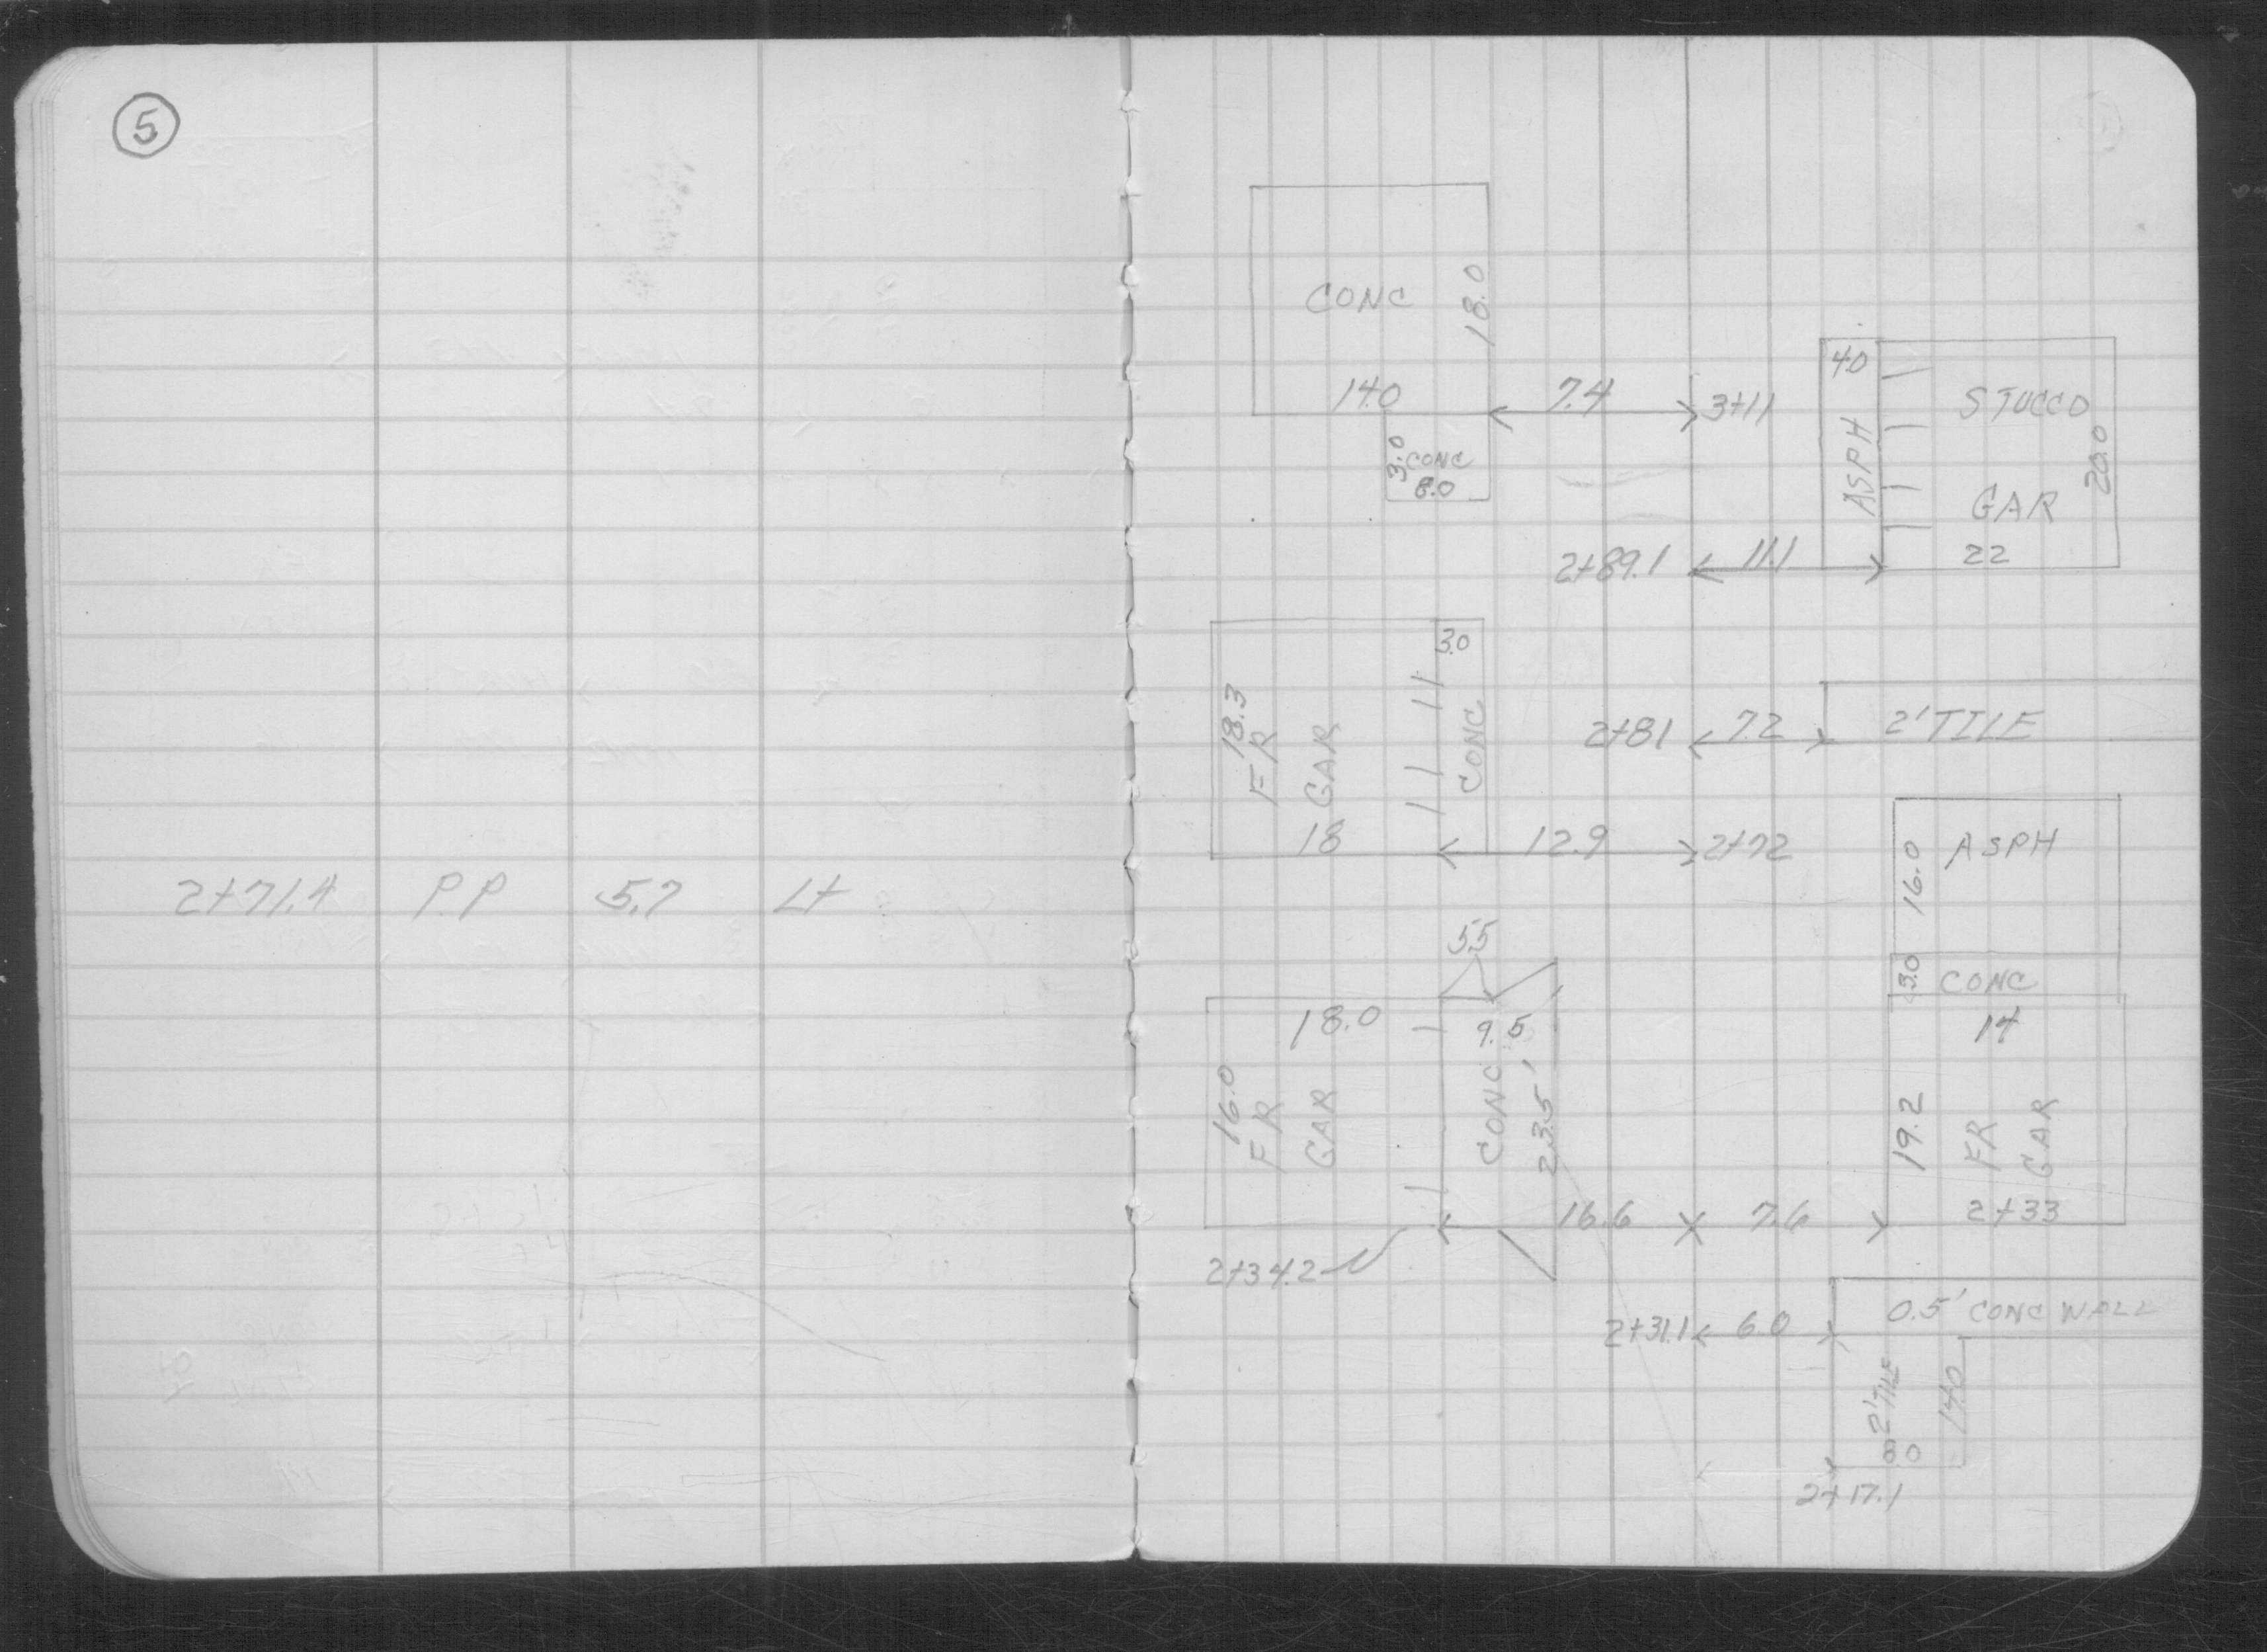 5
2+71.4 P.P 5.7 Lt
CONC
18.0
14.0
7.4
3+11
3.0
CONC
8.0
4.0
ASPH
STUCCO
GAR
20.0
22
2+89.1
11.1
18.3
FR
GAR
18
3.0
CONC
2+81
7.2
2' TILE
12.9
2+72
16.0
ASPH
3.0
CONC
14
19.2
FR
GAR
2+33
5.5
18.0
9.5
16.0
FR
GAR
CONC
23.5'
16.6
7.6
2+34.2
2+31.1
6.0
0.5' CONC WALL
2' TILE
14.0
8.0
2+17.1